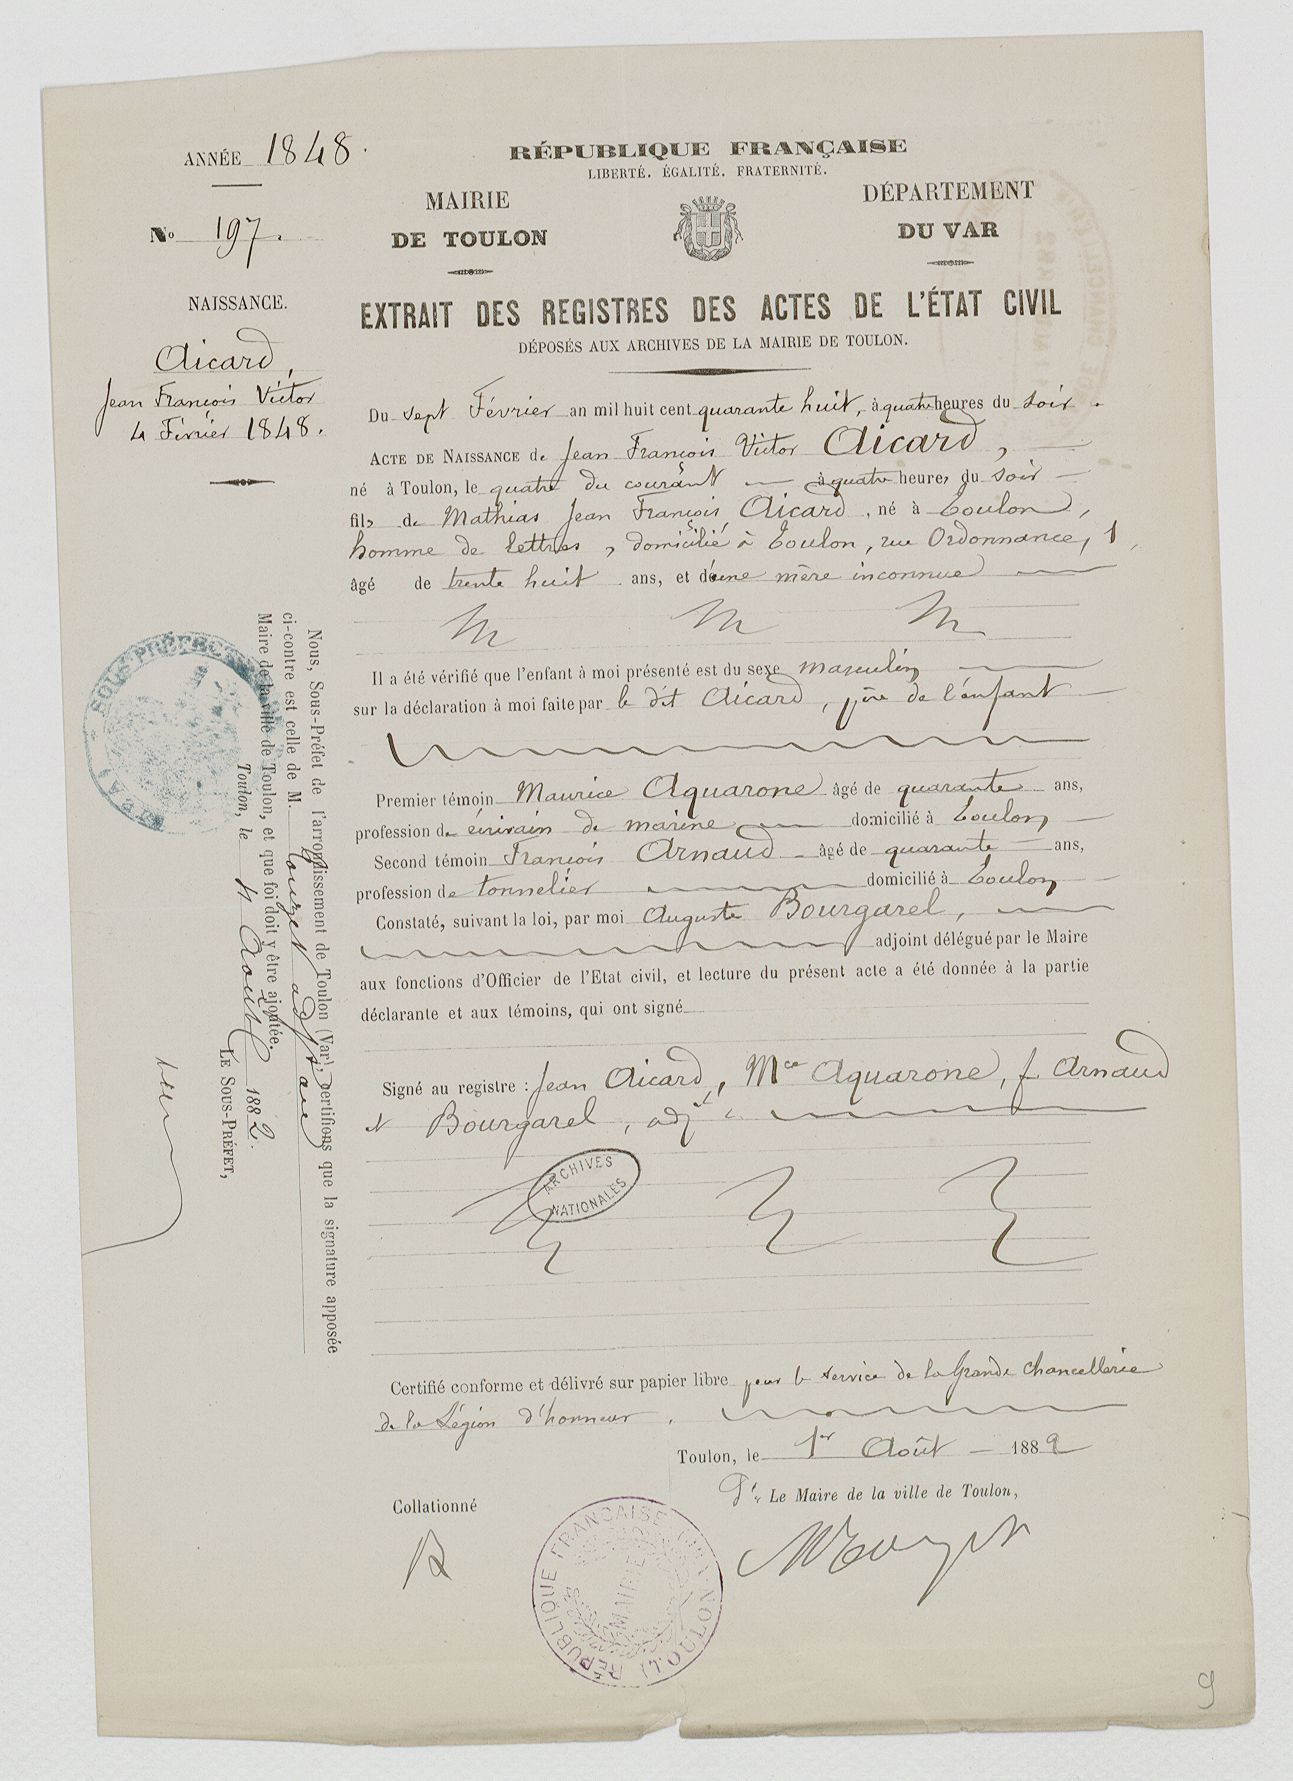 ANNÉE 1848.
No 197.
NAISSANCE.
Aicard,
Jean François Victor
4 Février 1848.
RÉPUBLIQUE FRANÇAISE
LIBERTÉ. ÉGALITÉ. FRATERNITÉ.
MAIRIE
DE TOULON
DÉPARTEMENT
DU VAR
EXTRAIT DES REGISTRES DES ACTES DE L'ÉTAT CIVIL
DÉPOSÉS AUX ARCHIVES DE LA MAIRIE DE TOULON.
Du sept Février an mil huit cent quarante huit, à quatre heures du soir.
ACTE DE NAISSANCE de Jean François Victor Aicard,
né à Toulon, le quatre du courant à quatre heures du soir
fils de Mathias Jean François Aicard, né à Toulon,
homme de lettres, domicilié à Toulon, rue Ordonnance, 1,
âgé de trente huit ans, et d'une mère inconnue
Il a été vérifié que l'enfant à moi présenté est du sexe masculin
sur la déclaration à moi faite par le dit Aicard, père de l'enfant
Premier témoin Maurice Aquarone âgé de quarante ans,
profession de écrivain de marine domicilié à Toulon
Second témoin François Arnaud âgé de quarante ans,
profession de tonnelier domicilié à Toulon
Constaté, suivant la loi, par moi Auguste Bourgarel,
adjoint délégué par le Maire
aux fonctions d'Officier de l'Etat civil, et lecture du présent acte a été donnée à la partie
déclarante et aux témoins, qui ont signé
Signé au registre : Jean Aicard, Mce Aquarone, f Arnaud
et Bourgarel, adjt
ARCHIVES
NATIONALES
Certifié conforme et délivré sur papier libre pour le service de la Grande Chancellerie
de la Légion d'honneur.
Toulon, le 1er Août 1882
Pr Le Maire de la ville de Toulon,
Collationné
RÉPUBLIQUE FRANÇAISE
MAIRIE
TOULON
Nous, Sous-Préfet de l'arrondissement de Toulon (Var), certifions que la signature apposée
ci-contre est celle de M. adjt au
Maire de la ville de Toulon, et que foi doit y être ajoutée.
Toulon, le 4 Août 1882.
LE SOUS-PRÉFET,
SOUS-PRÉFECT
9